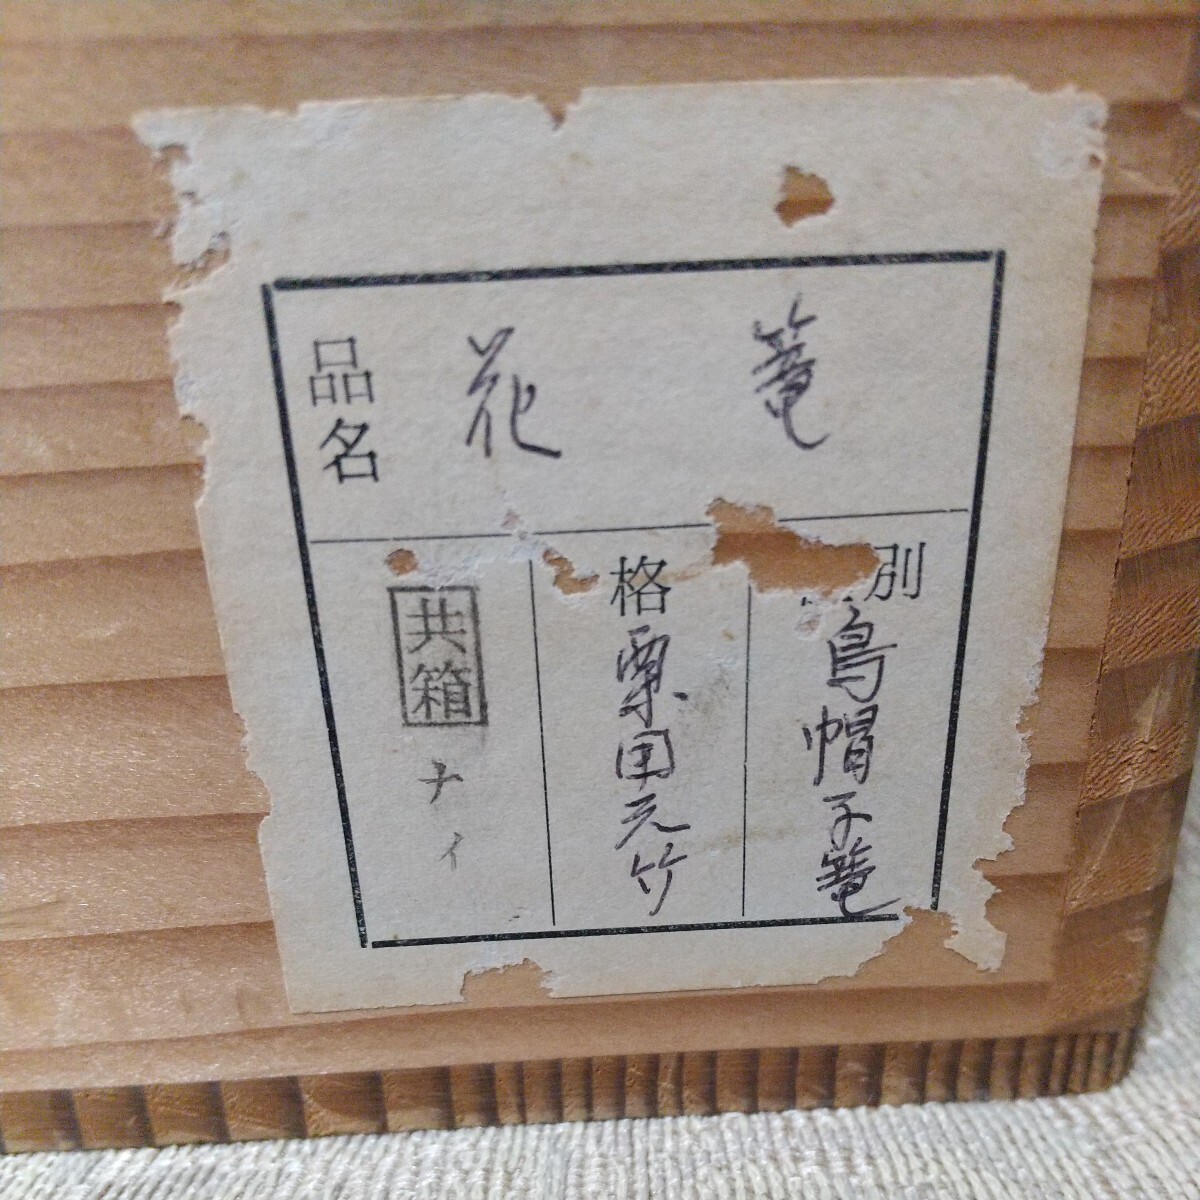 品名
花篭
別
烏帽子篭
格
栗田元竹
共箱
ナイ